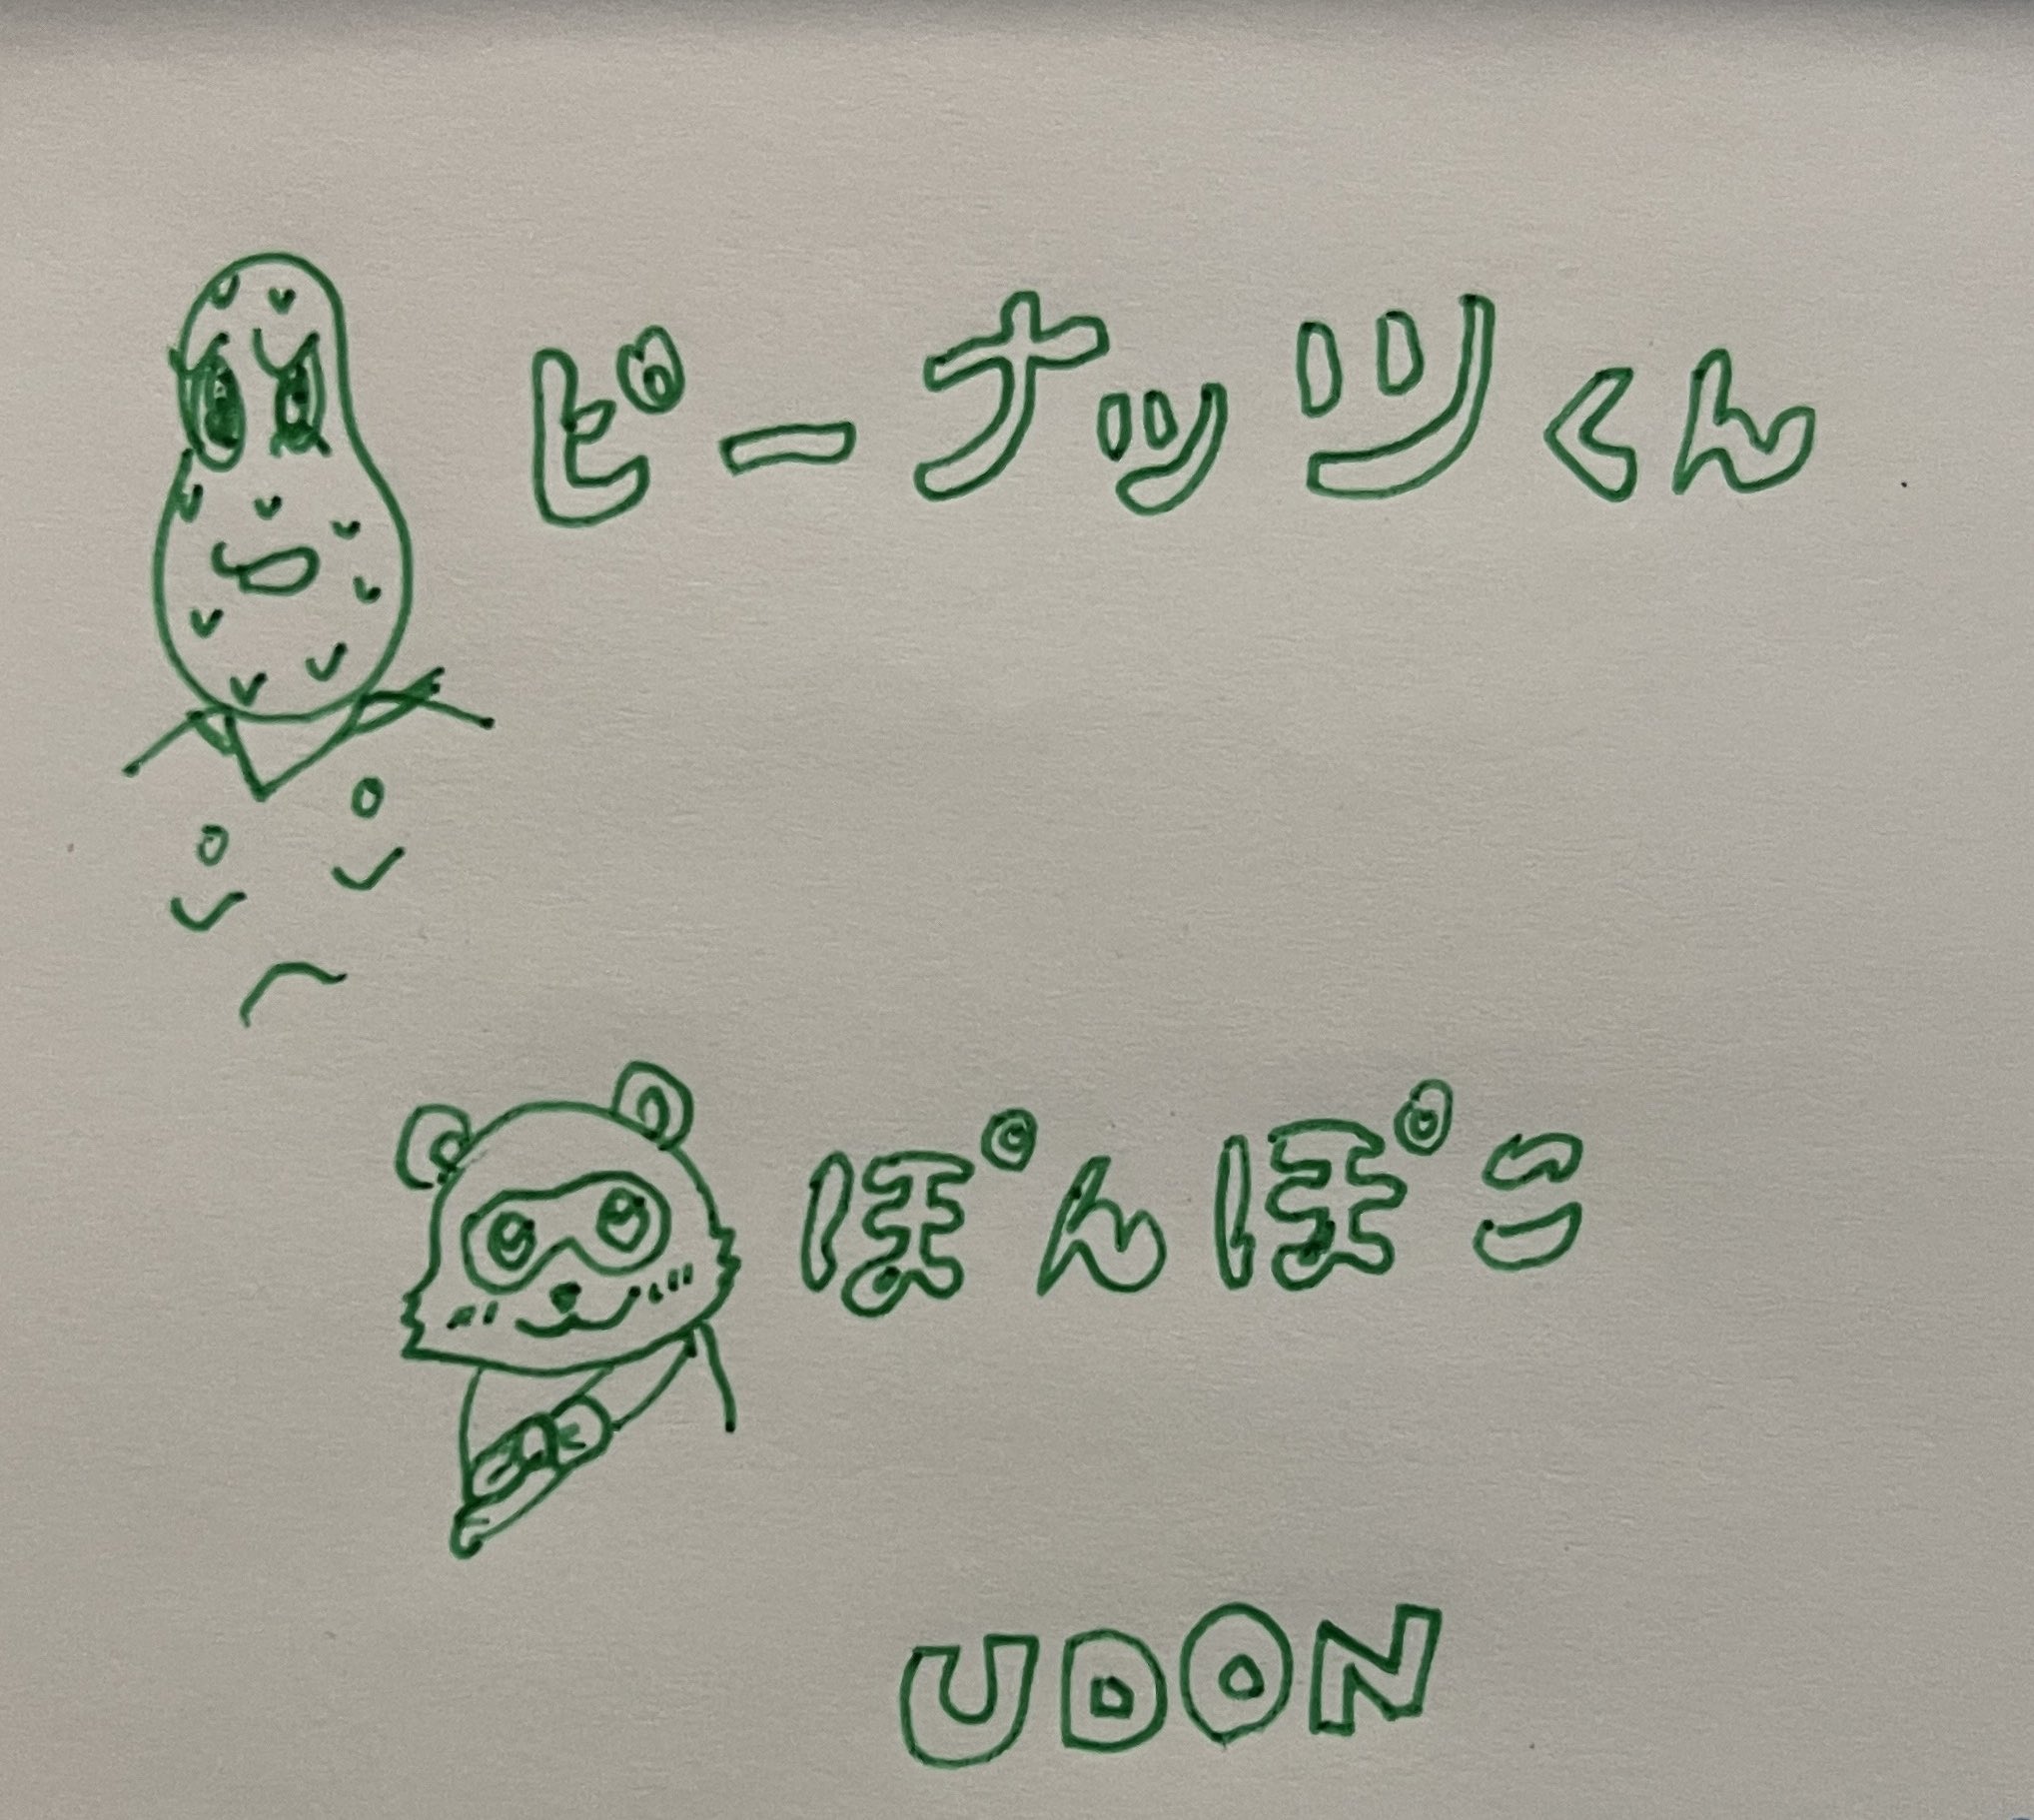 ピーナッツくん
ぽんぽこ
UDON